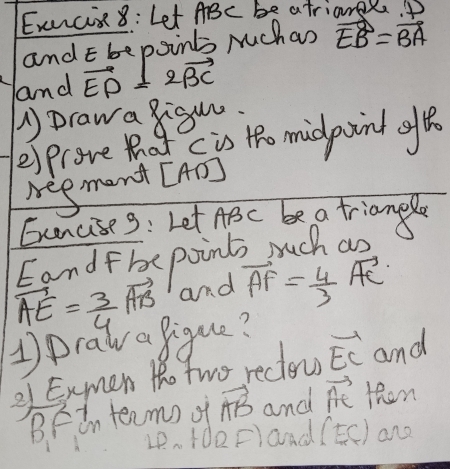 Exercise 8: Let ABC be a triangle. D
and E be points such as EB = BA
and ED = 2BC
1) Draw a figure.
2) Prove that C is the midpoint of the
segment [AD]
Exercise 9: Let ABC be a triangle
E and F be points such as
AE = 3/4 AB and AF = 4/3 AC.
1) Draw a figure?
2) Express the two vectors EC and
BF in terms of AB and AC then
and (EC) are